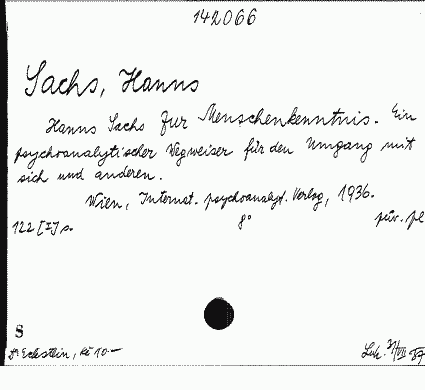 142066
Sachs, Hanns
Hanns Sachs Zur Menschenkenntnis. Ein
psychoanalytischer Wegweiser für den Umgang mit
sich und anderen.
Wien, Internat. psychoanalyt. Verlag, 1936.
122 [I] s. 8° pův. pl
S
Dr Eckstein, Kč 10.—